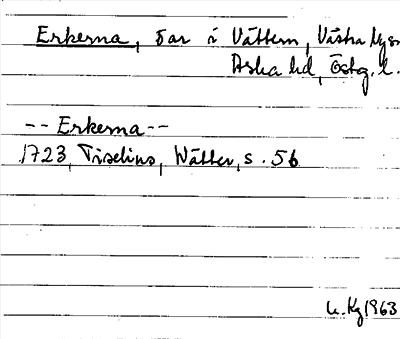 Erkerna, öar i Vättern, Västra Ny sn
Aska hd, Östg. l.
-- Erkerna --
1723, Tiselius, Wätter, s. 56